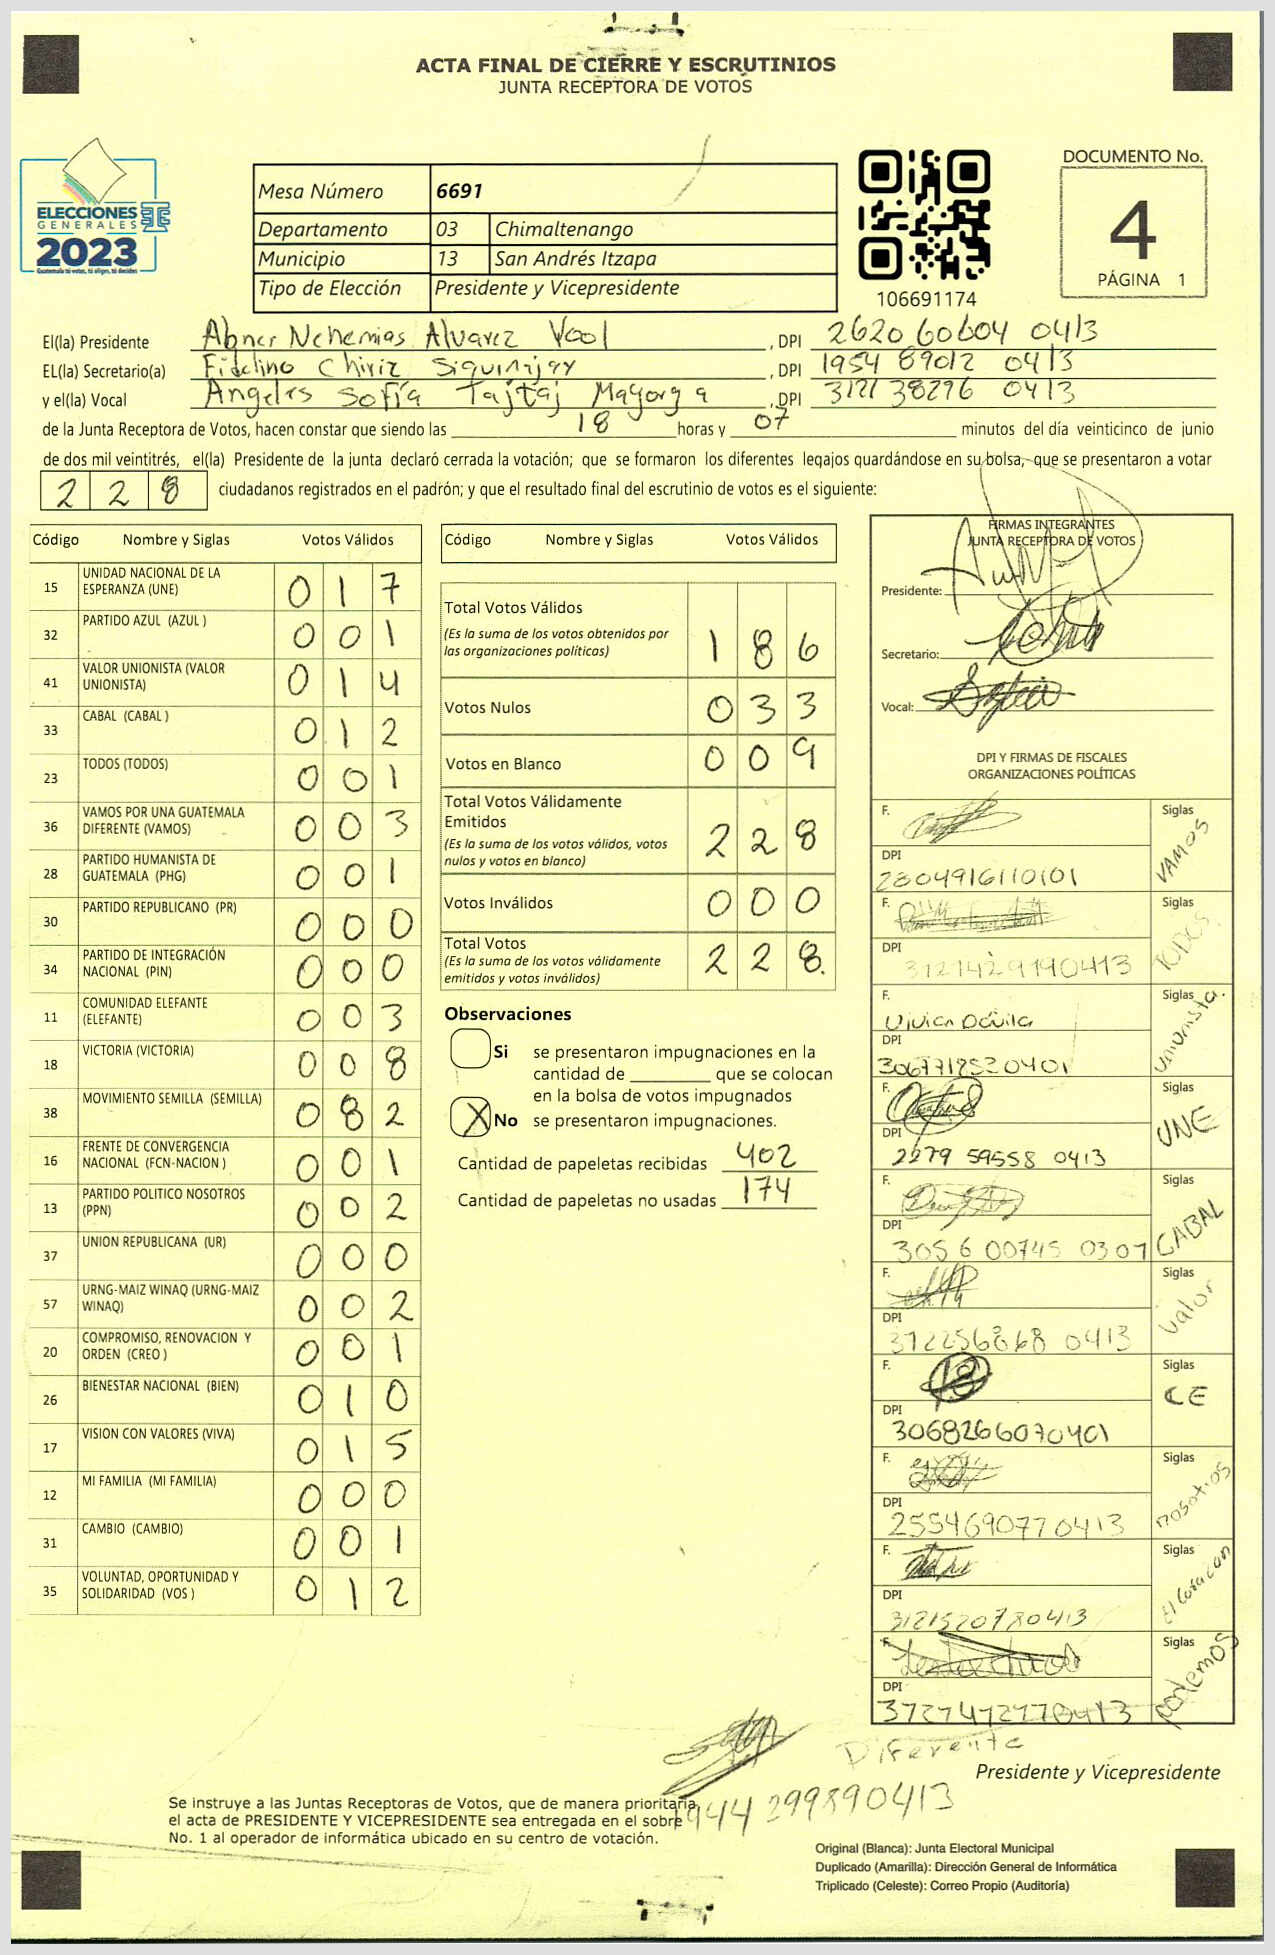 ACTA FINAL DE CIERRE Y ESCRUTINIOS
JUNTA RECEPTORA DE VOTOS
ELECCIONES
GENERALES
2023
Guatemala tú votas, tú eliges, tú decides
Mesa Número 6691
Departamento 03 Chimaltenango
Municipio 13 San Andrés Itzapa
Tipo de Elección Presidente y Vicepresidente
106691174
DOCUMENTO No.
4
PÁGINA 1
El(la) Presidente Abner Nehemias Alvarez Yool, DPI 2620 60604 0413
EL(la) Secretario(a) Fidelino Chiriz Siquinajay, DPI 1954 89012 0413
y el(la) Vocal Angeles Sofía Tajtaj Mayorga, DPI 3121 38276 0413
de la Junta Receptora de Votos, hacen constar que siendo las 18 horas y 07 minutos del día veinticinco de junio
de dos mil veintitrés, el(la) Presidente de la junta declaró cerrada la votación; que se formaron los diferentes legajos quardándose en su bolsa, que se presentaron a votar
228 ciudadanos registrados en el padrón; y que el resultado final del escrutinio de votos es el siguiente:
Código Nombre y Siglas Votos Válidos
15 UNIDAD NACIONAL DE LA ESPERANZA (UNE) 017
32 PARTIDO AZUL (AZUL ) 001
41 VALOR UNIONISTA (VALOR UNIONISTA) 014
33 CABAL (CABAL ) 012
23 TODOS (TODOS) 001
36 VAMOS POR UNA GUATEMALA DIFERENTE (VAMOS) 003
28 PARTIDO HUMANISTA DE GUATEMALA (PHG) 001
30 PARTIDO REPUBLICANO (PR) 000
34 PARTIDO DE INTEGRACIÓN NACIONAL (PIN) 000
11 COMUNIDAD ELEFANTE (ELEFANTE) 003
18 VICTORIA (VICTORIA) 008
38 MOVIMIENTO SEMILLA (SEMILLA) 082
16 FRENTE DE CONVERGENCIA NACIONAL (FCN-NACION ) 001
13 PARTIDO POLITICO NOSOTROS (PPN) 002
37 UNION REPUBLICANA (UR) 000
57 URNG-MAIZ WINAQ (URNG-MAIZ WINAQ) 002
20 COMPROMISO, RENOVACION Y ORDEN (CREO ) 001
26 BIENESTAR NACIONAL (BIEN) 010
17 VISION CON VALORES (VIVA) 015
12 MI FAMILIA (MI FAMILIA) 000
31 CAMBIO (CAMBIO) 001
35 VOLUNTAD, OPORTUNIDAD Y SOLIDARIDAD (VOS ) 012
Código Nombre y Siglas Votos Válidos
Total Votos Válidos 186
(Es la suma de los votos obtenidos por
las organizaciones políticas)
Votos Nulos 033
Votos en Blanco 009
Total Votos Válidamente
Emitidos 228
(Es la suma de los votos válidos, votos
nulos y votos en blanco)
Votos Inválidos 000
Total Votos 228.
(Es la suma de los votos válidamente
emitidos y votos inválidos)
Observaciones
Si se presentaron impugnaciones en la
cantidad de ________ que se colocan
en la bolsa de votos impugnados
X No se presentaron impugnaciones.
Cantidad de papeletas recibidas 402
Cantidad de papeletas no usadas 174
FIRMAS INTEGRANTES
JUNTA RECEPTORA DE VOTOS
Presidente:
Secretario:
Vocal:
DPI Y FIRMAS DE FISCALES
ORGANIZACIONES POLÍTICAS
F. Siglas VAMOS
DPI 2804916110101
F. Siglas TODOS
DPI 3121429190413
F. Vivian Dávila Siglas Unionista.
DPI 3067718520401
F. Siglas UNE
DPI 2279 59558 0413
F. Siglas CABAL
DPI 3056 00745 0307
F. Siglas Valor
DPI 372256868 0413
F. Siglas CE
DPI 3068266070401
F. Siglas nosotros
DPI 2554690770413
F. Siglas El Corazon
DPI 3121520780413
F. Siglas podemos
DPI 3727472770413
Diferente
1944 299890413
Presidente y Vicepresidente
Se instruye a las Juntas Receptoras de Votos, que de manera prioritaria,
el acta de PRESIDENTE Y VICEPRESIDENTE sea entregada en el sobre
No. 1 al operador de informática ubicado en su centro de votación.
Original (Blanca): Junta Electoral Municipal
Duplicado (Amarilla): Dirección General de Informática
Triplicado (Celeste): Correo Propio (Auditoría)